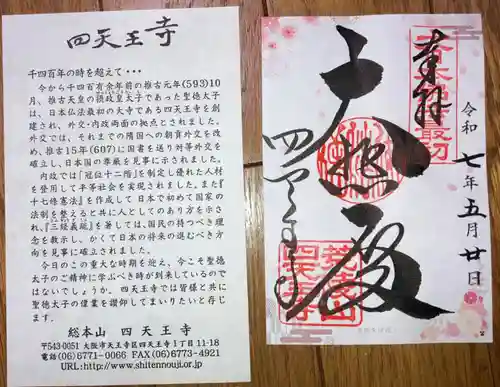 四天王寺
千四百年の時を超えて・・・
今から千四百有余年前の推古元年(593)10
月、推古天皇の摂政皇太子であった聖徳太子
は、日本仏法最初の大寺である四天王寺を創
建され、外交・内政両面の拠点とされました。
外交では、それまでの隋国への朝貢外交を改
め、推古15年(607)に国書を送り対等外交を
確立し、日本国の尊厳を見事に示されました。
内政では「冠位十二階」を制定し優れた人材
を登用して平等社会を実現されました。また『
十七條憲法』を作成して日本で初めて国家の
法制を整えると共に人としてのあり方を示さ
れ、『三経義疏』を著しては、国民の持つべき理
念を教示し、かくて日本の将来の進むべき方
向を見事に確立されました。
今日のこの重大な時期を迎え、今こそ聖徳
太子のご精神に学ぶべき時が到来しているので
はないでしょうか。四天王寺では皆様と共に
聖徳太子の偉業を讃仰してまいりたいと存じ
ます。
総本山 四天王寺
〒543-0051 大阪市天王寺区四天王寺1丁目11-18
電話(06)6771-0066 FAX(06)6773-4921
URL:http://www.shitennouji.or.jp
奉拝
令和七年五月廿日
大悲殿
四天王寺